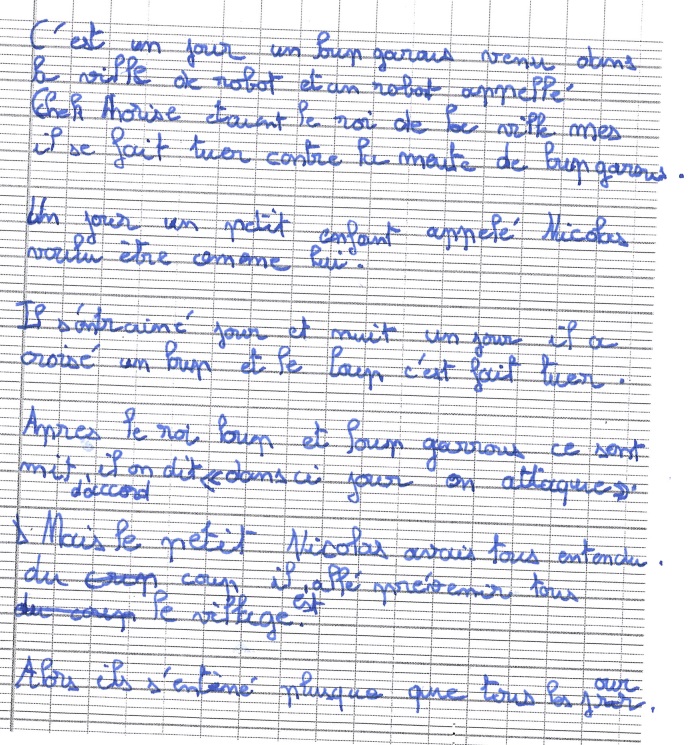 C'est un jour un loup garous venu dans
la ville de robot et un robot appellé
Chef Thorise étaient le roi de la ville mes
il se fait tuer contre la meute de loup garous.
Un jour un petit enfant appelé Nicolas
voulu être comme lui.
Il s'entrainé jour et nuit un jour il a
croisé un loup et le loup c'est fait tuer.
Apres le roi loup et loup garrous ce sont
mit d'accord il on dit « dans ci jour on attaque »
Mais le petit Nicolas avais tous entendu.
du coup il est allé prévenir tous
le village.
Alors ils s'entêné plusque que tous les jour.